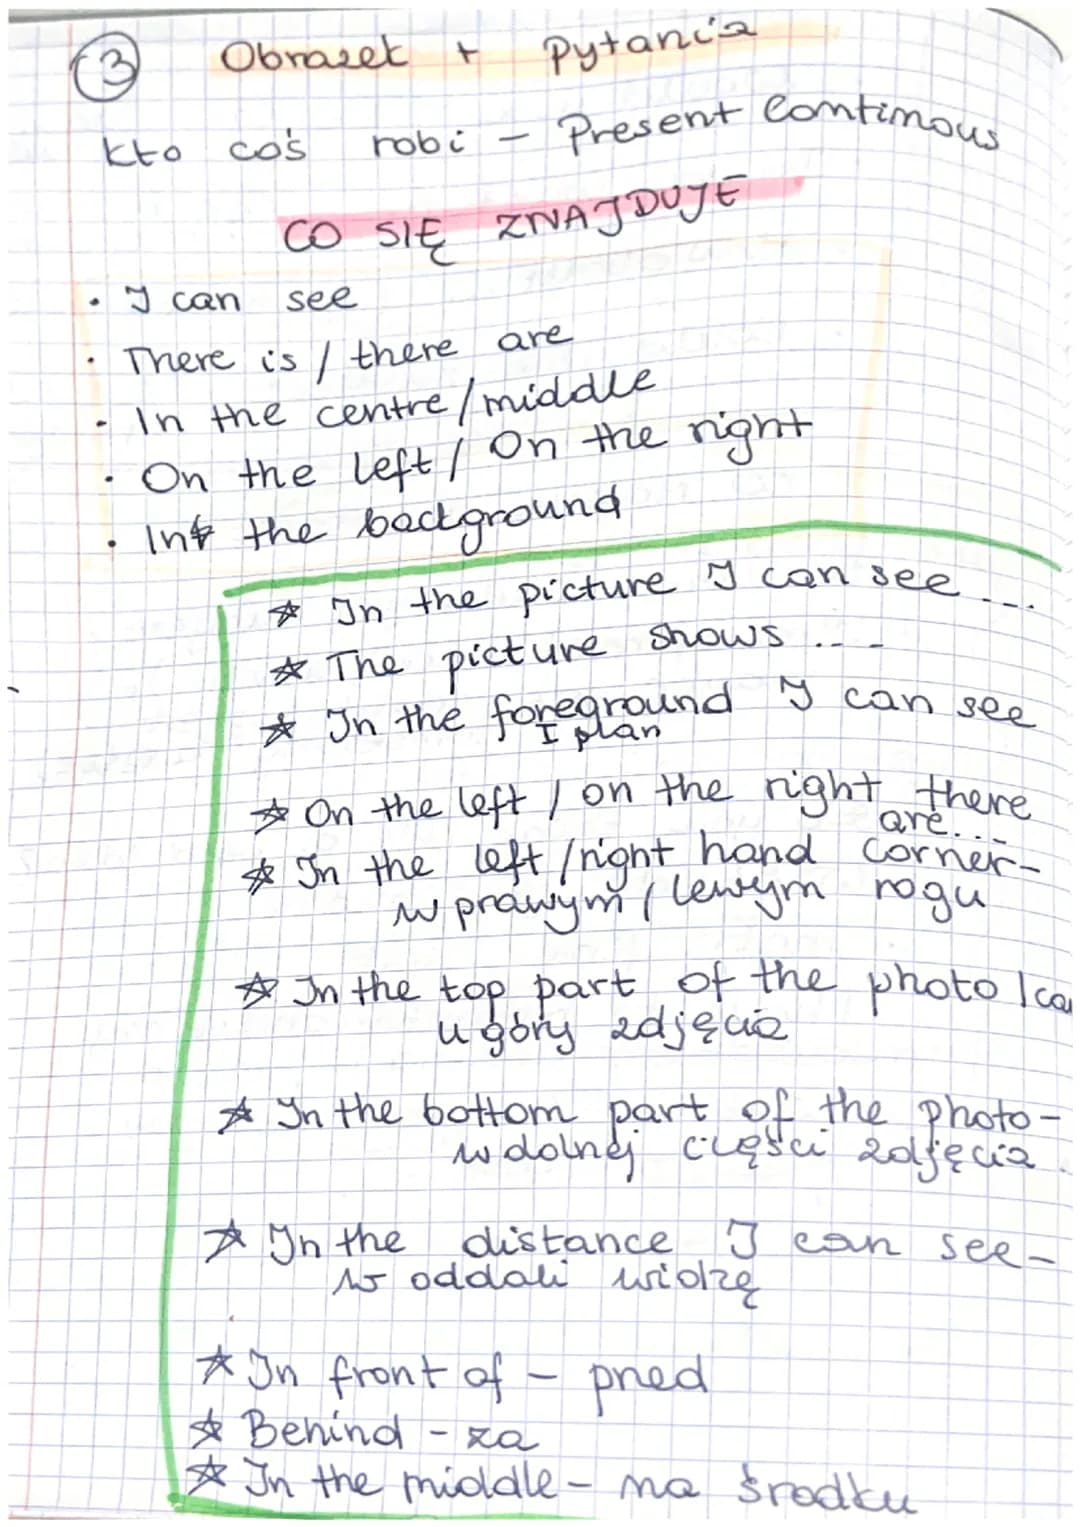 3 Obrazek + Pytania
Kto coś robi - Present Continous
CO SIĘ ZNAJDUJE
• I can see
• There is / there are
• In the centre / middle
• On the left / On the right
• In the background
☆ In the picture I can see ...
☆ The picture shows ...
☆ In the foreground I can see
I plan
☆ On the left / on the right there
are...
☆ In the left / right hand corner-
w prawym / lewym rogu
☆ In the top part of the photo I ca
u góry zdjęcia
☆ In the bottom part of the photo-
w dolnej części zdjęcia
☆ In the distance I can see-
w oddali widzę
☆ In front of - przed
☆ Behind - za
☆ In the middle - na środku